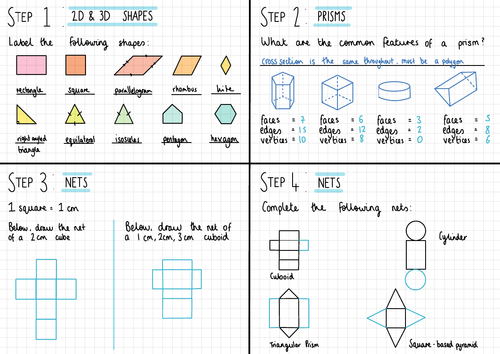 STEP 1 : 2D & 3D SHAPES
Label the following shapes:
rectangle square parallelogram rhombus kite
right angled triangle equilateral isosceles pentagon hexagon
STEP 2 : PRISMS
What are the common features of a prism?
cross section is the same throughout, must be a polygon
faces = 7 faces = 6 faces = 3 faces = 5
edges = 15 edges = 12 edges = 2 edges = 8
vertices = 10 vertices = 8 vertices = 0 vertices = 6
STEP 3 : NETS
1 square = 1 cm
Below, draw the net
of a 2cm cube
Below, draw the net of
a 1cm, 2cm, 3cm cuboid
STEP 4 : NETS
Complete the following nets:
Cylinder
Cuboid
Triangular Prism
Square-based pyramid